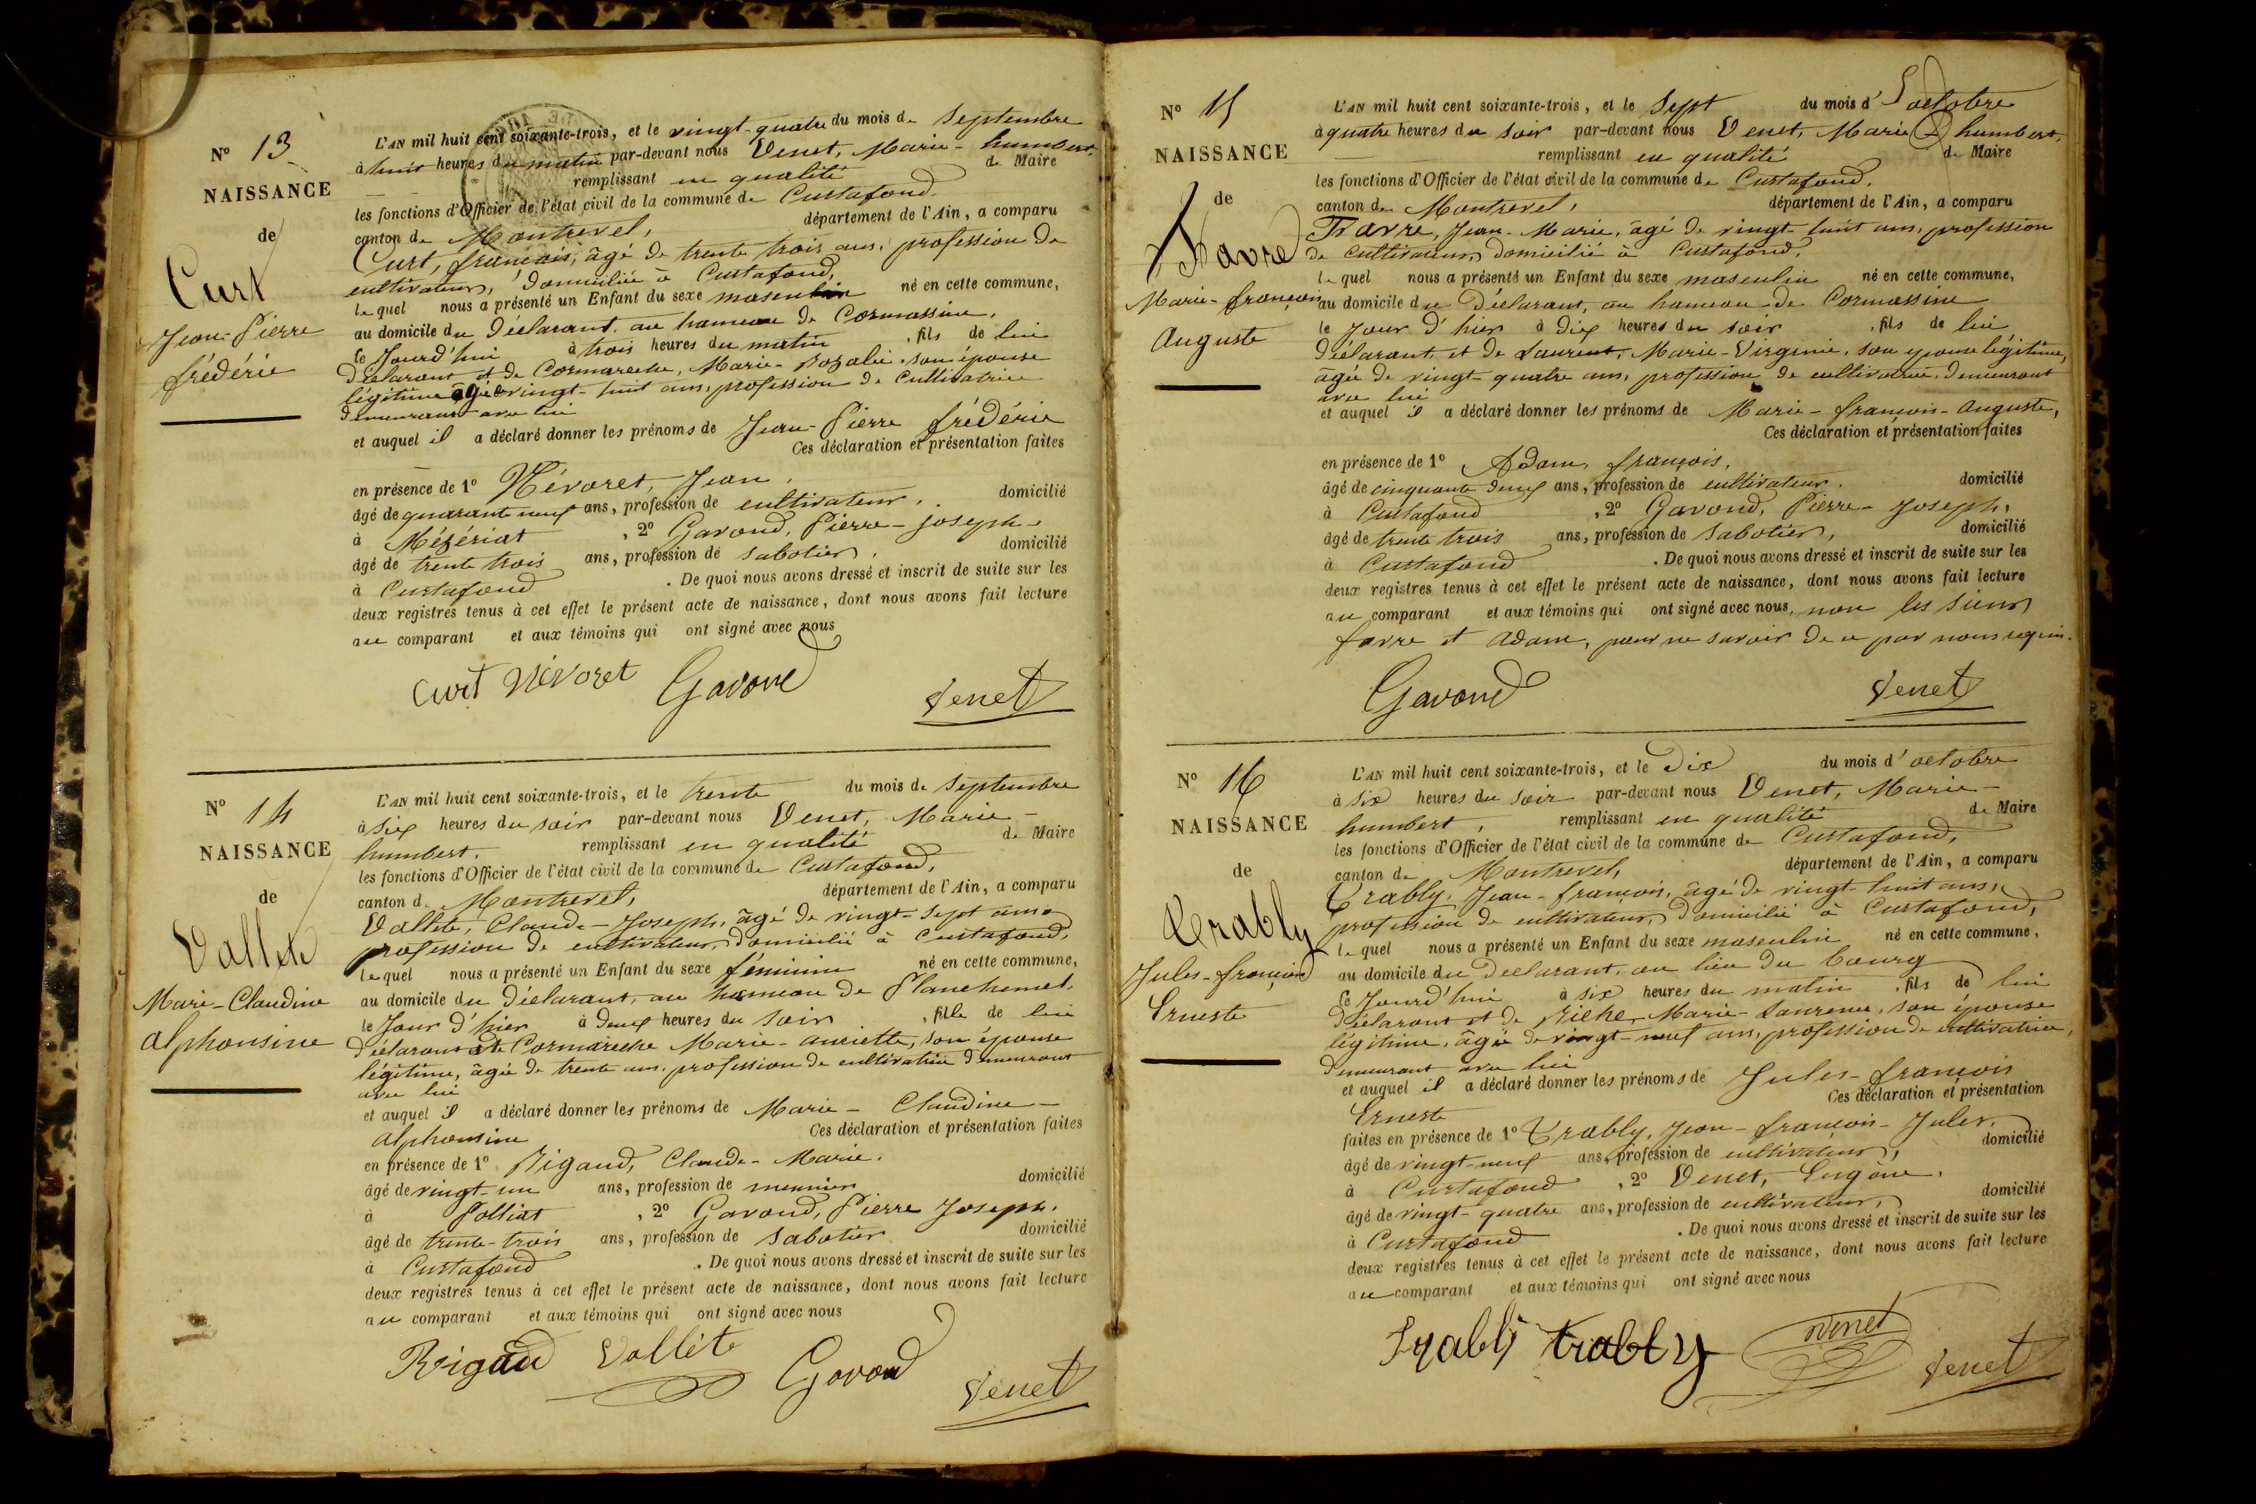 N° 13
NAISSANCE
de
Curt
Jean-Pierre
frédéric
L'AN mil huit cent soixante-trois, et le vingt-quatre du mois de Septembre
à huit heures du matin par-devant nous Venet, Marie-humbert,
remplissant en qualité de Maire
les fonctions d'Officier de l'état civil de la commune de Curtafond.
canton de Montrevel, département de l'Ain, a comparu
Curt, françois, âgé de trente trois ans, profession de
cultivateur, domicilié à Curtafond,
lequel nous a présenté un Enfant du sexe masculin né en cette commune,
au domicile du Déclarant, au hameau de Cormassine,
le Jourd'hui à trois heures du matin, fils de lui
Déclarant et de Cormareche, Marie-Rozalie, son épouse
légitime âgée vingt-huit ans, profession de Cultivatrice
demeurant avec lui
et auquel il a déclaré donner les prénoms de Jean-Pierre frédéric
Ces déclaration et présentation faites
en présence de 1° Névoret, Jean,
âgé de quarante neuf ans, profession de cultivateur, domicilié
à Mézériat, 2° Gavond, Pierre-joseph,
âgé de trente trois ans, profession de sabotier, domicilié
à Curtafond. De quoi nous avons dressé et inscrit de suite sur les
deux registres tenus à cet effet le présent acte de naissance, dont nous avons fait lecture
au comparant et aux témoins qui ont signé avec nous
Curt Névoret Gavond Venet
N° 14
NAISSANCE
de
Vallete
Marie-Claudine
alphonsine
L'AN mil huit cent soixante-trois, et le trente du mois de Septembre
à six heures du soir par-devant nous Venet, Marie-
humbert, remplissant en qualité de Maire
les fonctions d'Officier de l'état civil de la commune de Curtafond,
canton de Montrevel, département de l'Ain, a comparu
Vallete, Claude-Joseph, âgé de vingt-sept ans
profession de cultivateur, domicilié à Curtafond,
lequel nous a présenté un Enfant du sexe féminin né en cette commune,
au domicile du Déclarant, au hameau de Planchemel,
le Jour d'hier à deux heures du soir, fille de lui
Déclarant et de Cormareche Marie-auriette, son épouse
légitime, âgée de trente ans, profession de cultivatrice demeurant
avec lui
et auquel il a déclaré donner les prénoms de Marie-Claudine-
alphonsine Ces déclaration et présentation faites
en présence de 1° Rigaud, Claude-Marie,
âgé de vingt-un ans, profession de meunier domicilié
à Polliat, 2° Gavond, Pierre Joseph,
âgé de trente-trois ans, profession de sabotier domicilié
à Curtafond. De quoi nous avons dressé et inscrit de suite sur les
deux registres tenus à cet effet le présent acte de naissance, dont nous avons fait lecture
au comparant et aux témoins qui ont signé avec nous
Rigaud Vallete Gavond Venet
N° 15
NAISSANCE
de
Favre
Marie-françois
Auguste
L'AN mil huit cent soixante-trois, et le Sept du mois d'octobre
à quatre heures du soir par-devant nous Venet, Marie humbert,
remplissant en qualité de Maire
les fonctions d'Officier de l'état civil de la commune de Curtafond,
canton de Montrevel, département de l'Ain, a comparu
Favre, Jean-Marie, âgé de vingt-huit ans, profession
de cultivateur, domicilié à Curtafond,
lequel nous a présenté un Enfant du sexe masculin né en cette commune,
au domicile du Déclarant, au hameau de Cormassine
le Jour d'hier à dix heures du soir, fils de lui
déclarant, et de Laurent, Marie-Virginie, son épouse légitime,
âgée de vingt-quatre ans, profession de cultivatrice, demeurant
avec lui
et auquel il a déclaré donner les prénoms de Marie-françois-Auguste,
Ces déclaration et présentation faites
en présence de 1° Adam, françois,
âgé de cinquante deux ans, profession de cultivateur, domicilié
à Curtafond, 2° Gavond, Pierre-Joseph,
âgé de trente trois ans, profession de Sabotier, domicilié
à Curtafond. De quoi nous avons dressé et inscrit de suite sur les
deux registres tenus à cet effet le présent acte de naissance, dont nous avons fait lecture
au comparant et aux témoins qui ont signé avec nous, non les sieurs
favre et adam, pour ne savoir de ce par nous requis.
Gavond Venet
N° 16
NAISSANCE
de
Trably
Jules-françois
Erneste
L'AN mil huit cent soixante-trois, et le Dix du mois d'octobre
à six heures du soir par-devant nous Venet, Marie-
humbert, remplissant en qualité de Maire
les fonctions d'Officier de l'état civil de la commune de Curtafond,
canton de Montrevel, département de l'Ain, a comparu
Trably, Jean-françois, âgé de vingt-huit ans,
profession de cultivateur, domicilié à Curtafond,
lequel nous a présenté un Enfant du sexe masculin né en cette commune,
au domicile du Déclarant, au lieu du bourg
le Jourd'hui à six heures du matin, fils de lui
Déclarant et de Riche, Marie-Laurence, son épouse
légitime, âgée de vingt-neuf ans, profession de cultivatrice,
demeurant avec lui
et auquel il a déclaré donner les prénoms de Jules-françois
Erneste Ces déclaration et présentation
faites en présence de 1° Trably, Jean-françois-Jules,
âgé de vingt-neuf ans, profession de cultivateur, domicilié
à Curtafond, 2° Venet, Eugène,
âgé de vingt-quatre ans, profession de cultivateur, domicilié
à Curtafond. De quoi nous avons dressé et inscrit de suite sur les
deux registres tenus à cet effet le présent acte de naissance, dont nous avons fait lecture
au comparant et aux témoins qui ont signé avec nous
Trably trably Venet Venet